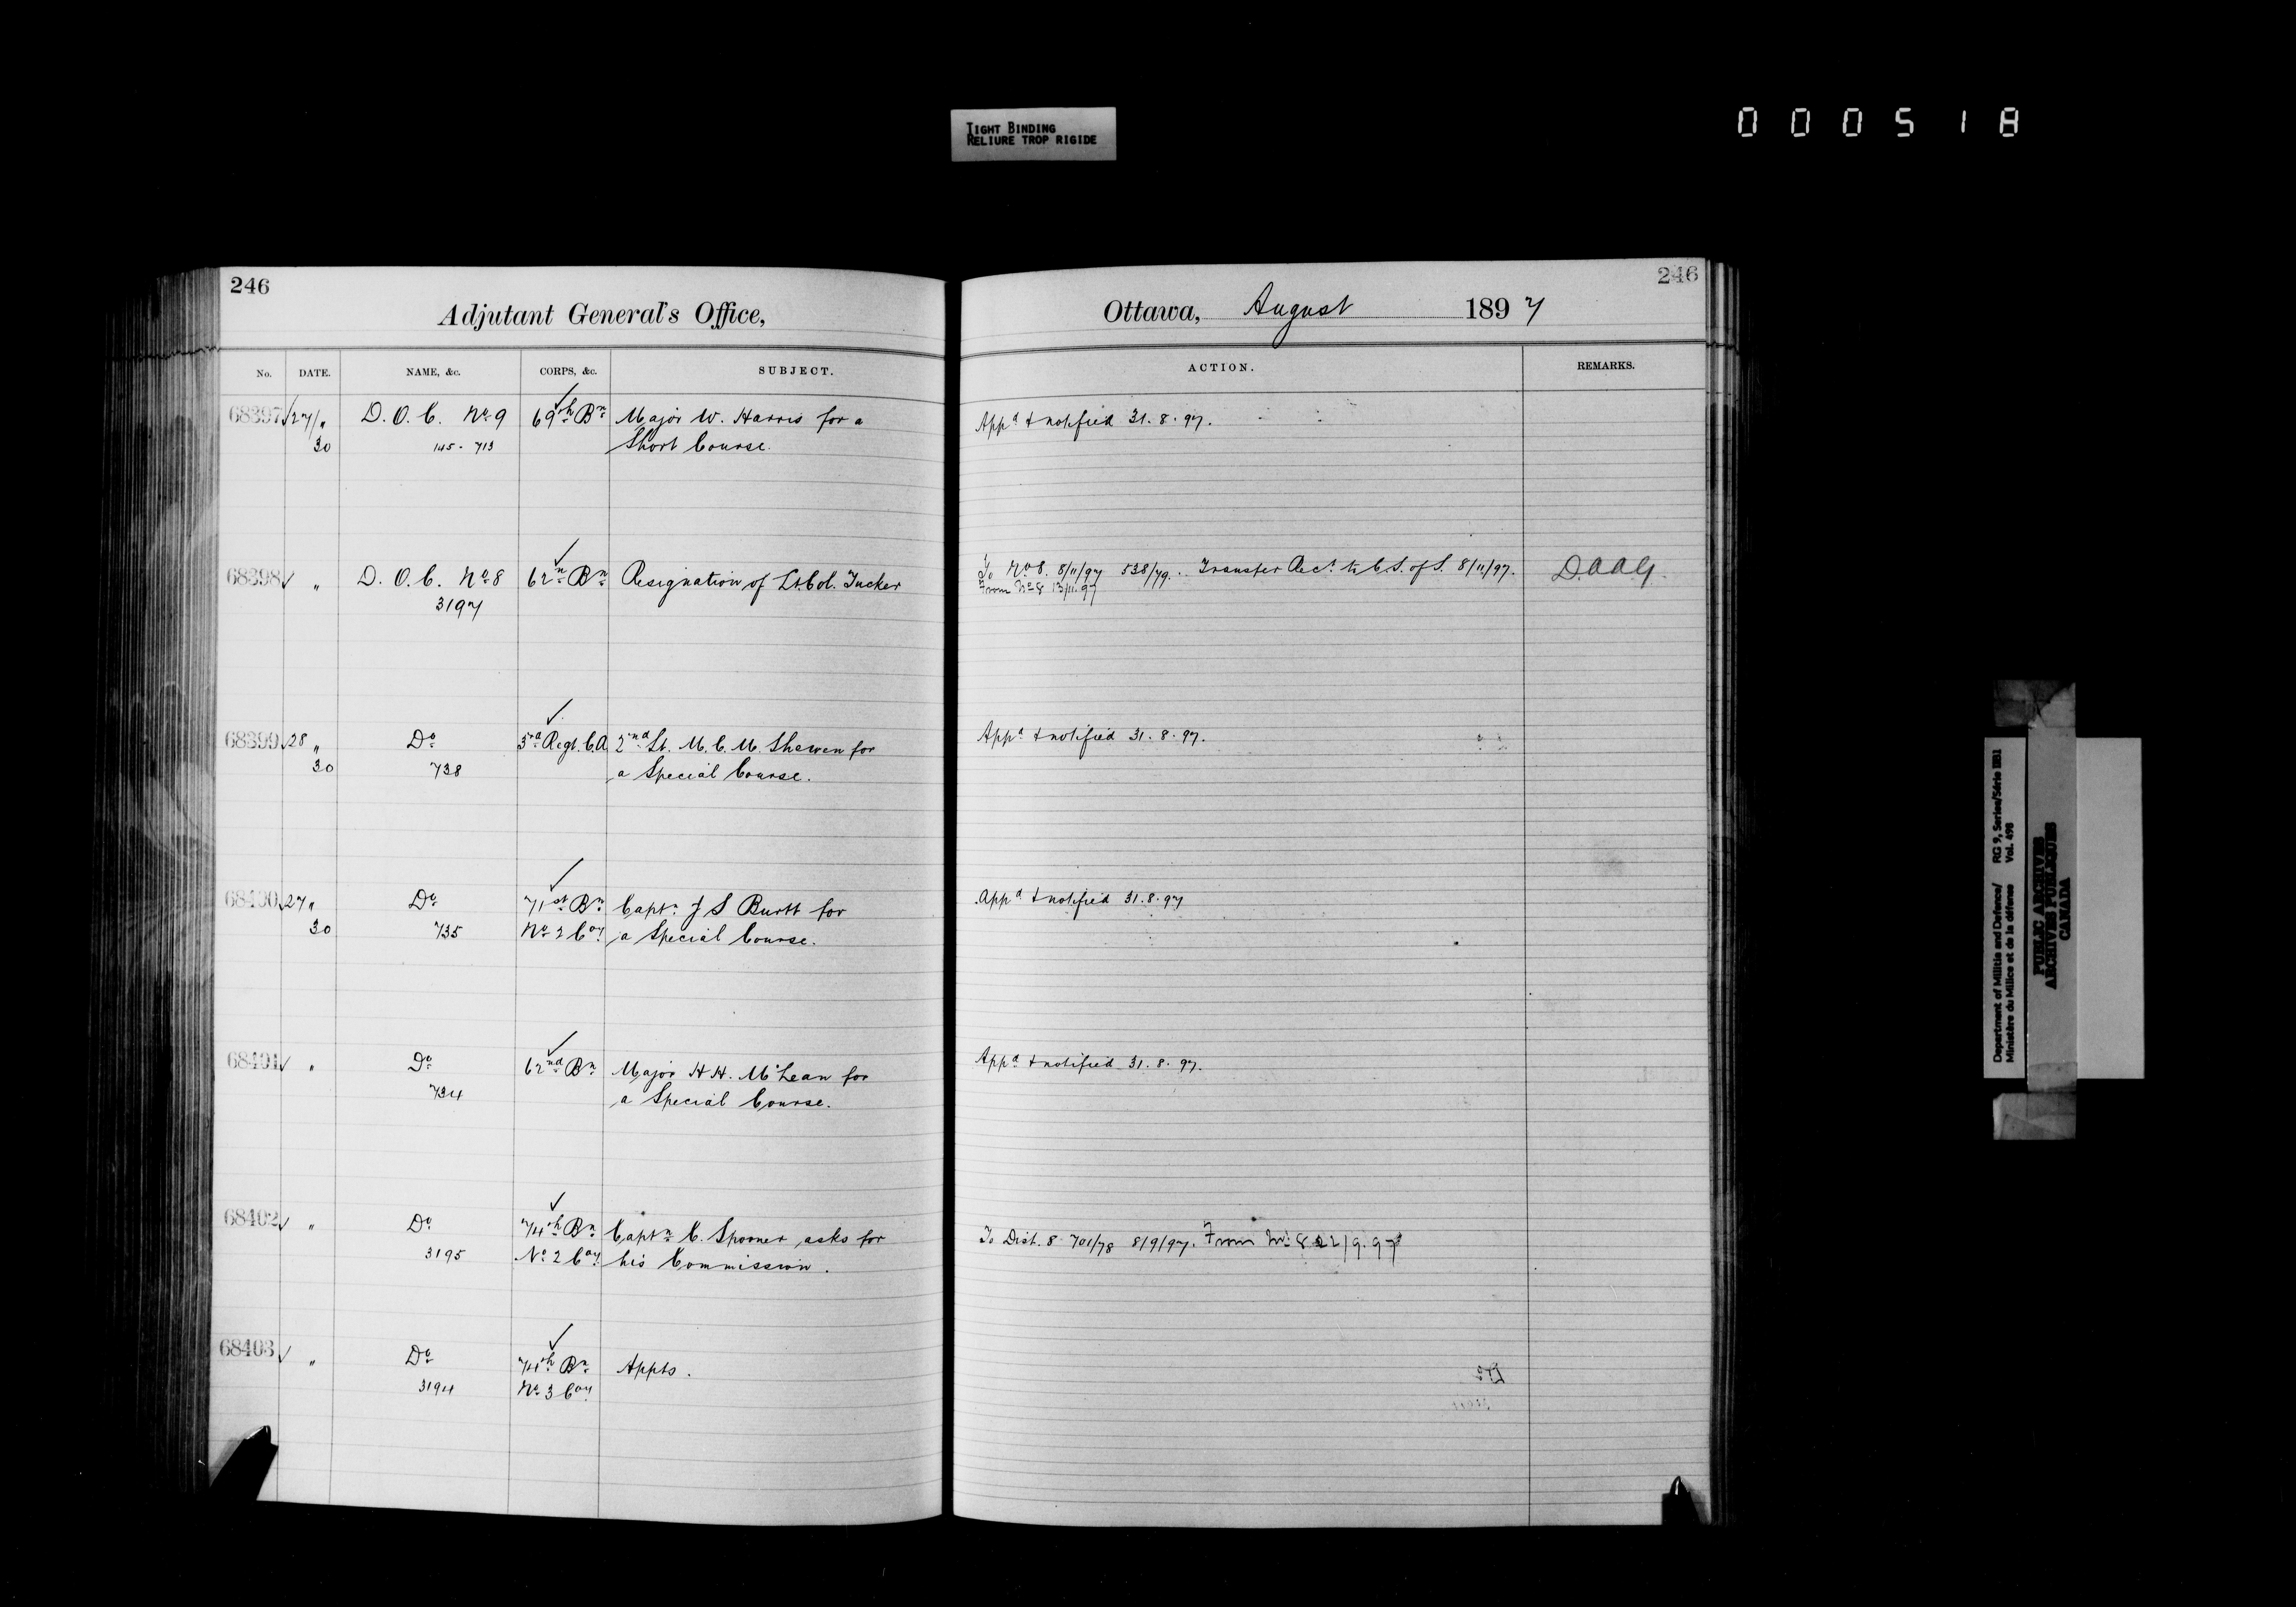 TIGHT BINDING
RELIURE TROP RIGIDE
000518
246
Adjutant General's Office,
No. DATE. NAME, &c. CORPS, &c. SUBJECT.
68397 27/" D.O.C. No 9 69th Bn Major W. Harris for a
30 145 - 713 Short Course.
68398 " D.O.C. No 8 62nd Bn Resignation of Lt. Col. Tucker
3197
68399 28 " Do 3rd Regt. C.A. 2nd Lt. M.C.M. Shewen for
30 738 a Special Course.
68400 27 " Do 71st Bn Captn J S Burtt for
30 735 No 2 Coy a Special Course.
68401 " Do 62nd Bn Major H H. McLean for
734 a Special Course.
68402 " Do 74th Bn Captn C. Spooner asks for
3195 No 2 Coy his Commission.
68403 " Do 74th Bn Appts.
3194 No 3 Coy
246
Ottawa, August 1897
ACTION. REMARKS.
Appd & notified 31.8.97.
To No 8. 8/11/97 538/79. Transfer Rect. to C.S. of S. 8/11/97. D.A.A.G.
From No 8 13/11.97
Appd & notified 31.8.97.
Appd & notified 31.8.97
Appd & notified 31.8.97.
To Dist. 8 701/78 8/9/97. From No 8 22/9.97
Department of Militia and Defence/ RG 9, Series/Série IIB1
Ministère du Milice et de la défense Vol. 498
PUBLIC ARCHIVES
ARCHIVES PUBLIQUES
CANADA